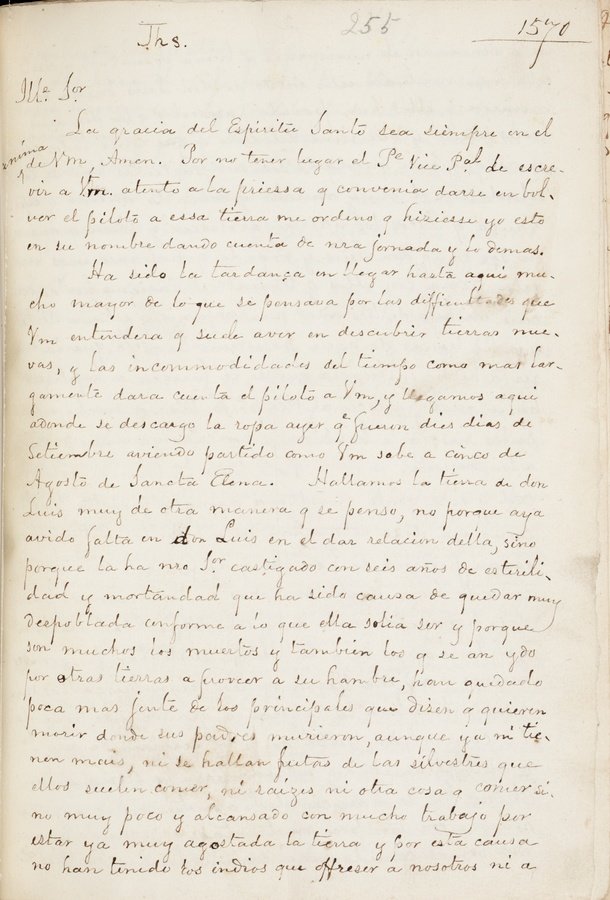 Jhs.
255
1570
Ille. Sor
La gracia del Espiritu Santo sea siempre en el
anima
de Vm, Amen. Por no tener lugar el Pe Vice Pal. de escre-
vir a Vm. atento a la priessa q convenia darse en bol-
ver el piloto a essa tierra me ordeno q hiziesse yo esto
en su nombre dando cuenta de nra jornada y lo demas.
Ha sido la tardança en llegar hasta aqui mu-
cho mayor de lo que se pensava por las difficultades que
Vm entendera q suele aver en descubrir tierras nue-
vas, y las incommodidades del tiempo como mas lar-
gamente dara cuenta el piloto a Vm, y llegamos aqui
adonde se descargo la ropa ayer q fueron dies dias de
Setiembre aviendo partido como Vm sabe a cinco de
Agosto de Sancta Elena. Hallamos la tierra de don
Luis muy de otra manera q se penso, no porque aya
avido falta en don Luis en el dar relacion della, sino
porque la ha nro Sor castigado con seis años de esterili-
dad y mortandad que ha sido causa de quedar muy
despoblada conforme a lo que ella solia ser y porque
son muchos los muertos y tambien los q se an ydo
por otras tierras a proveer a su hambre, han quedado
poca mas jente de los principales que dizen q quieren
morir donde sus padres murieron, aunque ya ni tie-
nen mais, ni se hallan frutas de las silvestres que
ellos suelen comer, ni raizes ni otra cosa q comer si-
no muy poco y alcansado con mucho trabajo por
estar ya muy agostada la tierra y por esta causa
no han tenido los indios que offreser a nosotros ni a